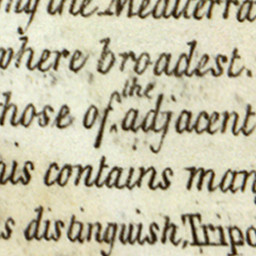 the Mediterra
where broadest.
hose of the adjacent
his contains man
s distinguish, Tripo